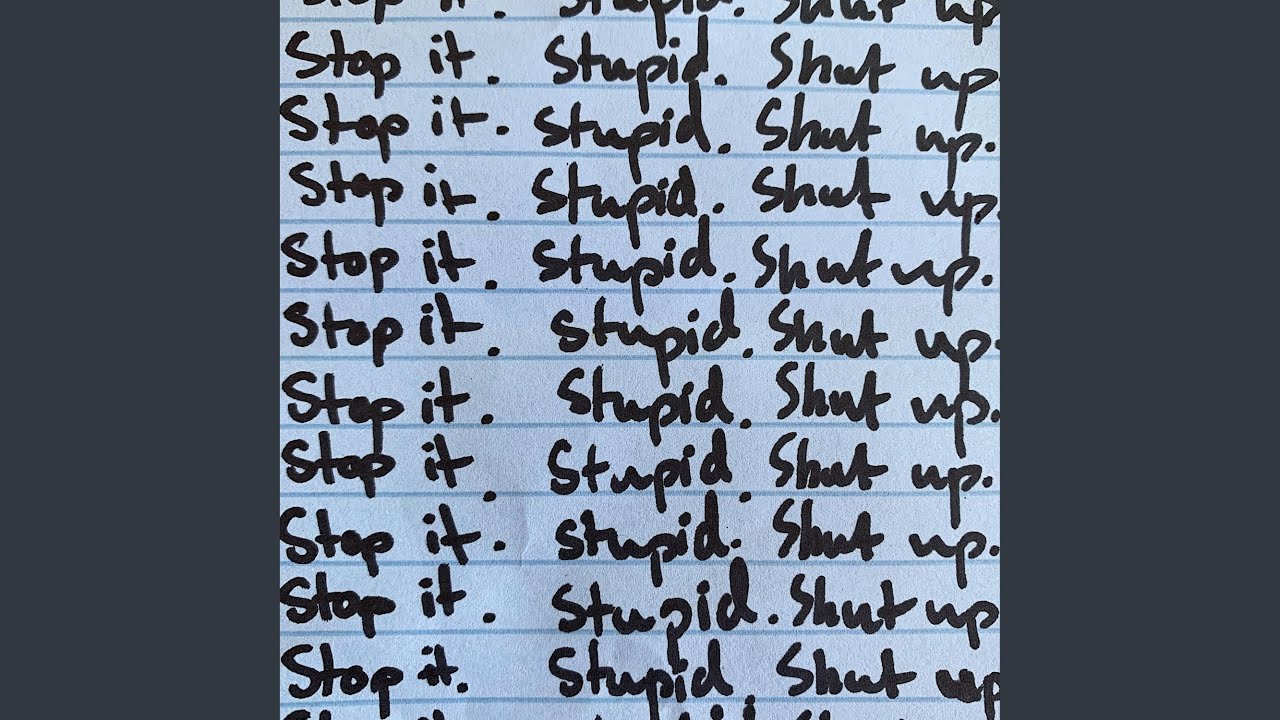 Stop it. Stupid. Shut up
Stop it. Stupid. Shut up
Stop it. Stupid. Shut up.
Stop it. Stupid. Shut up.
Stop it. Stupid. Shut up.
Stop it. Stupid. Shut up.
Stop it. Stupid. Shut up.
Stop it. Stupid. Shut up.
Stop it. Stupid. Shut up.
Stop it. Stupid. Shut up
Stop it. Stupid. Shut up